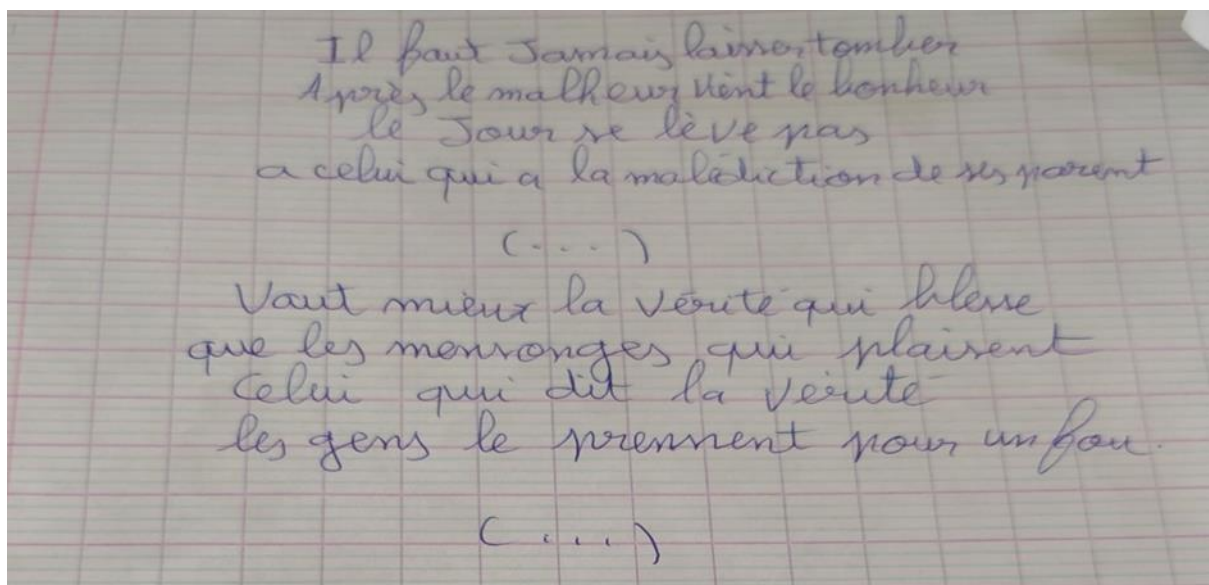 Il faut Jamais laisser tomber
Après le malheur vient le bonheur
le Jour se lève pas
a celui qui a la malédiction de ses parent
(...)
Vaut mieux la vérité qui blesse
que les mensonges qui plaisent
Celui qui dit la vérité
les gens le prennent pour un fou.
(....)